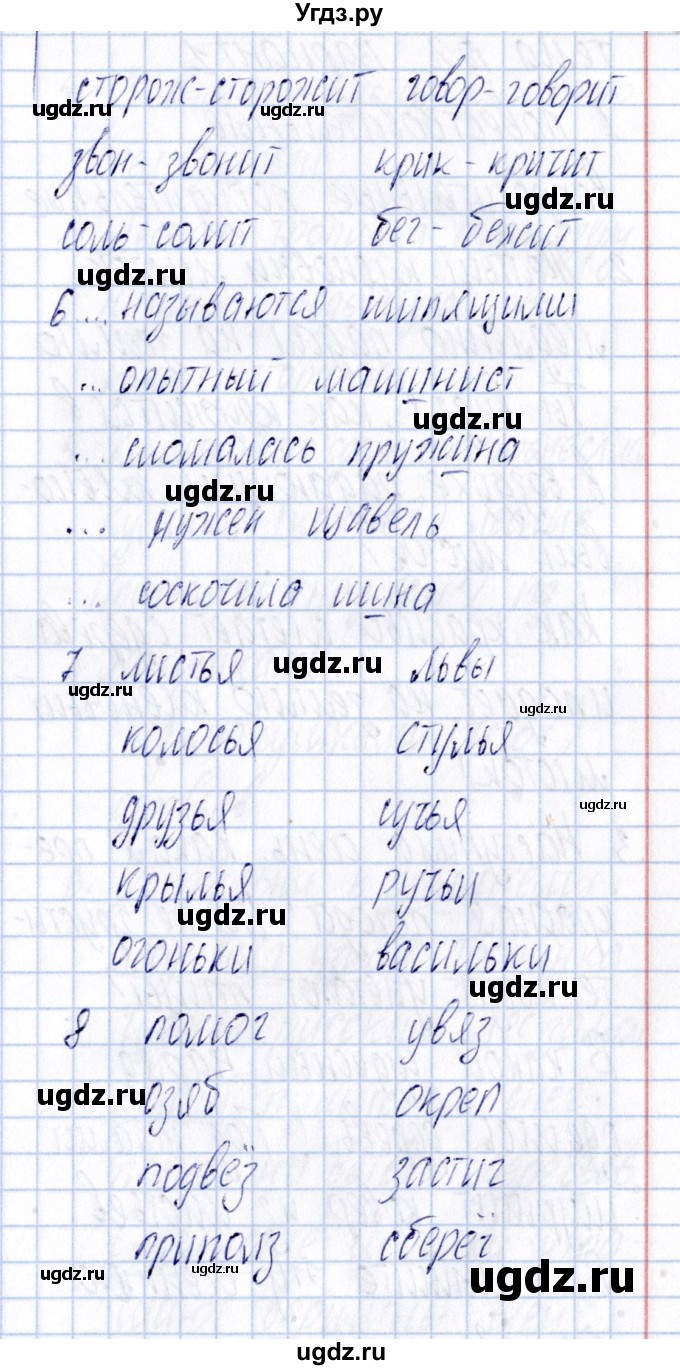 Угдз.ру
сторож-сторожит говор-говорит
ugdz.ru ugdz.ru
звон-звонит крик-кричит
ugdz.ru
соль-солит бег-бежит
ugdz.ru
6 ... называются шипящими
... опытный машинист
ugdz.ru
... сломалась пружина
ugdz.ru
... нужен щавель
... соскочила шина
7 листья ugdz.ru львы
ugdz.ru ugdz.ru
колосья стулья
ugdz.ru
друзья сучья
крылья ручьи
ugdz.ru
огоньки васильки
ugdz.ru
8 помог увяз
ugdz.ru озяб окреп
подвёз застиг
приполз сберёг
ugdz.ru ugdz.ru ugdz.ru
ugdz.ru